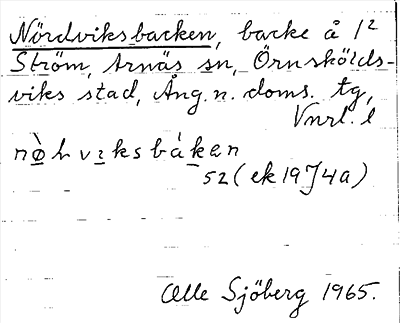 Nördviksbacken, backe å 1²
Ström, Arnäs sn, Örnskölds-
viks stad, Ång. n. doms. tg,
Vnrl. l
nø̀hvɪksbáken
52 (ek 19J4a)
Olle Sjöberg 1965.